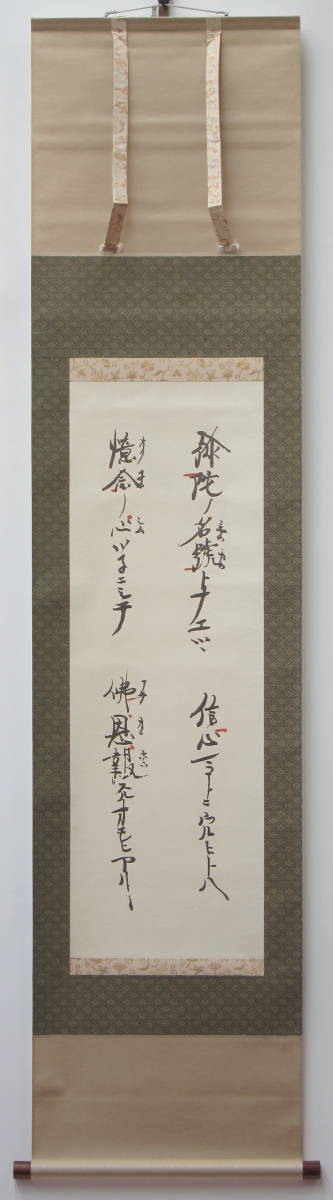 彌陀ノ名號トナエツヽ
信心マコトニウルヒトハ
憶念ノ心ツネニシテ
佛恩報スルオモヒアリ